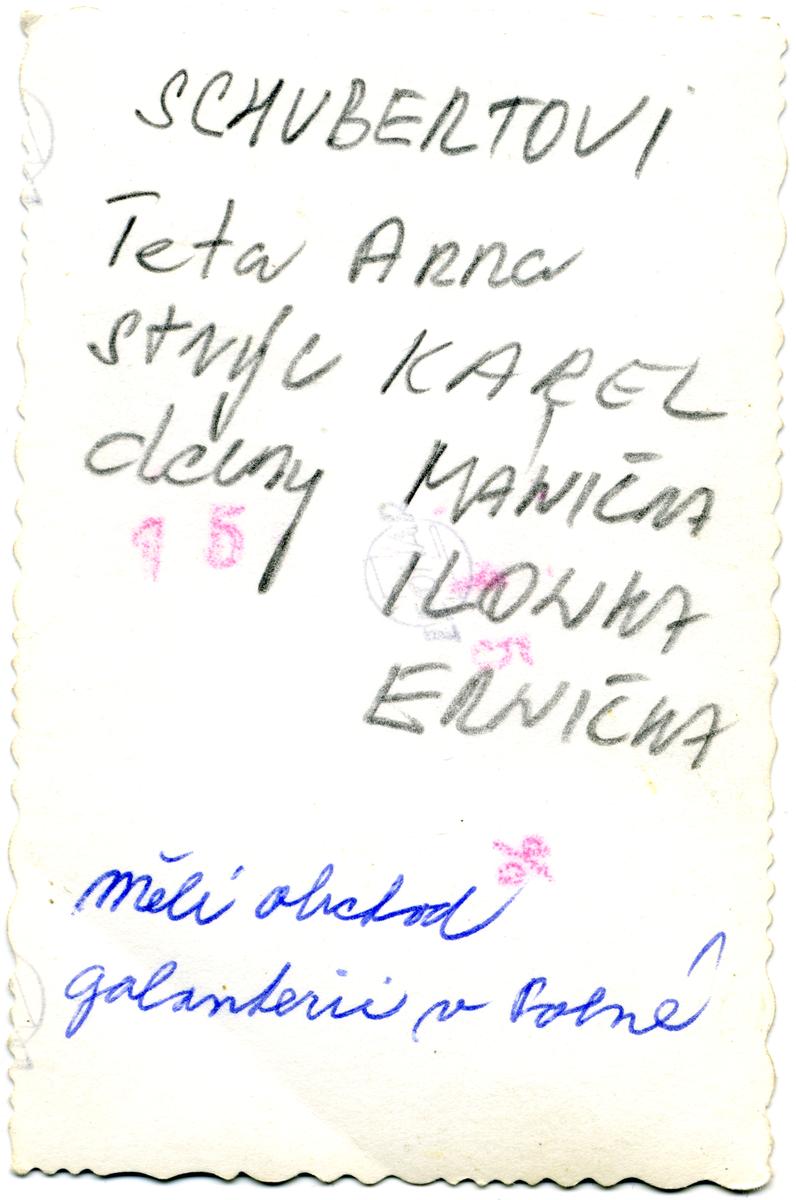 SCHUBERTOVI
Teta Anna
strýc KAREL
dcery MANIČKA
15
ILONKA
ERNIČKA
měli obchod
galanterii v Polné